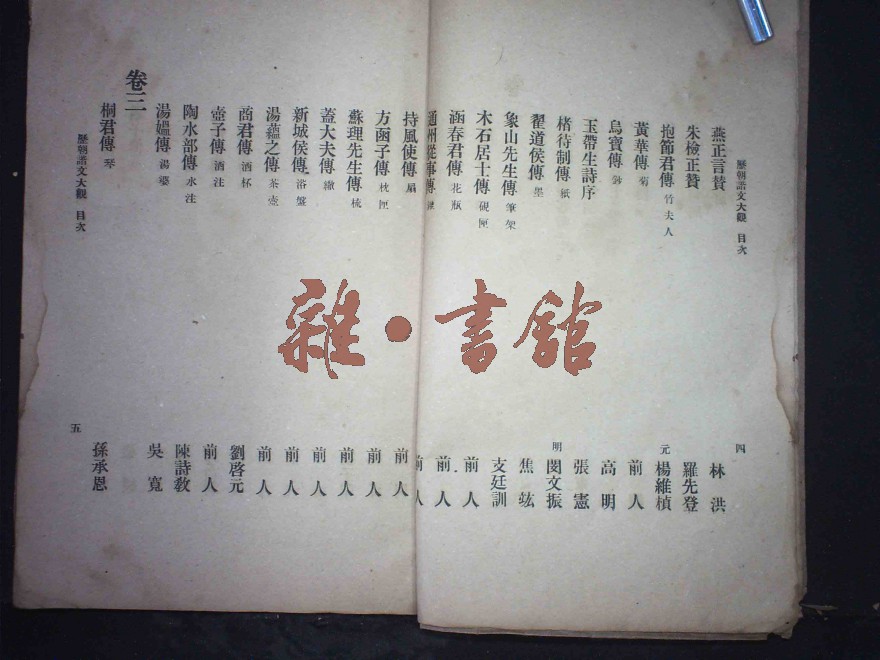 歷朝諧文大觀 目次 四
燕正言贊 林洪
朱檢正贊 羅先登
抱節君傳 竹夫人 元 楊維楨
黃華傳 菊 前人
烏寶傳 鈔 高明
玉帶生詩序 張憲
楮待制傳 紙 明 閔文振
翟道侯傳 墨 焦竑
象山先生傳 筆架 支廷訓
木石居士傳 硯匣 前人
涵春君傳 花瓶 前人
通州從事傳 前人
持風使傳 扇 前人
方函子傳 枕匣 前人
蘇理先生傳 梳 前人
蓋大夫傳 繖 前人
新城侯傳 浴盤 前人
湯蘊之傳 茶壺 前人
商君傳 酒杯 劉啓元
壺子傳 酒注 前人
陶水部傳 水注 陳詩教
湯媼傳 湯婆 吳寬
卷三
桐君傳 琴 孫承恩
歷朝諧文大觀 目次 五
雜·書館